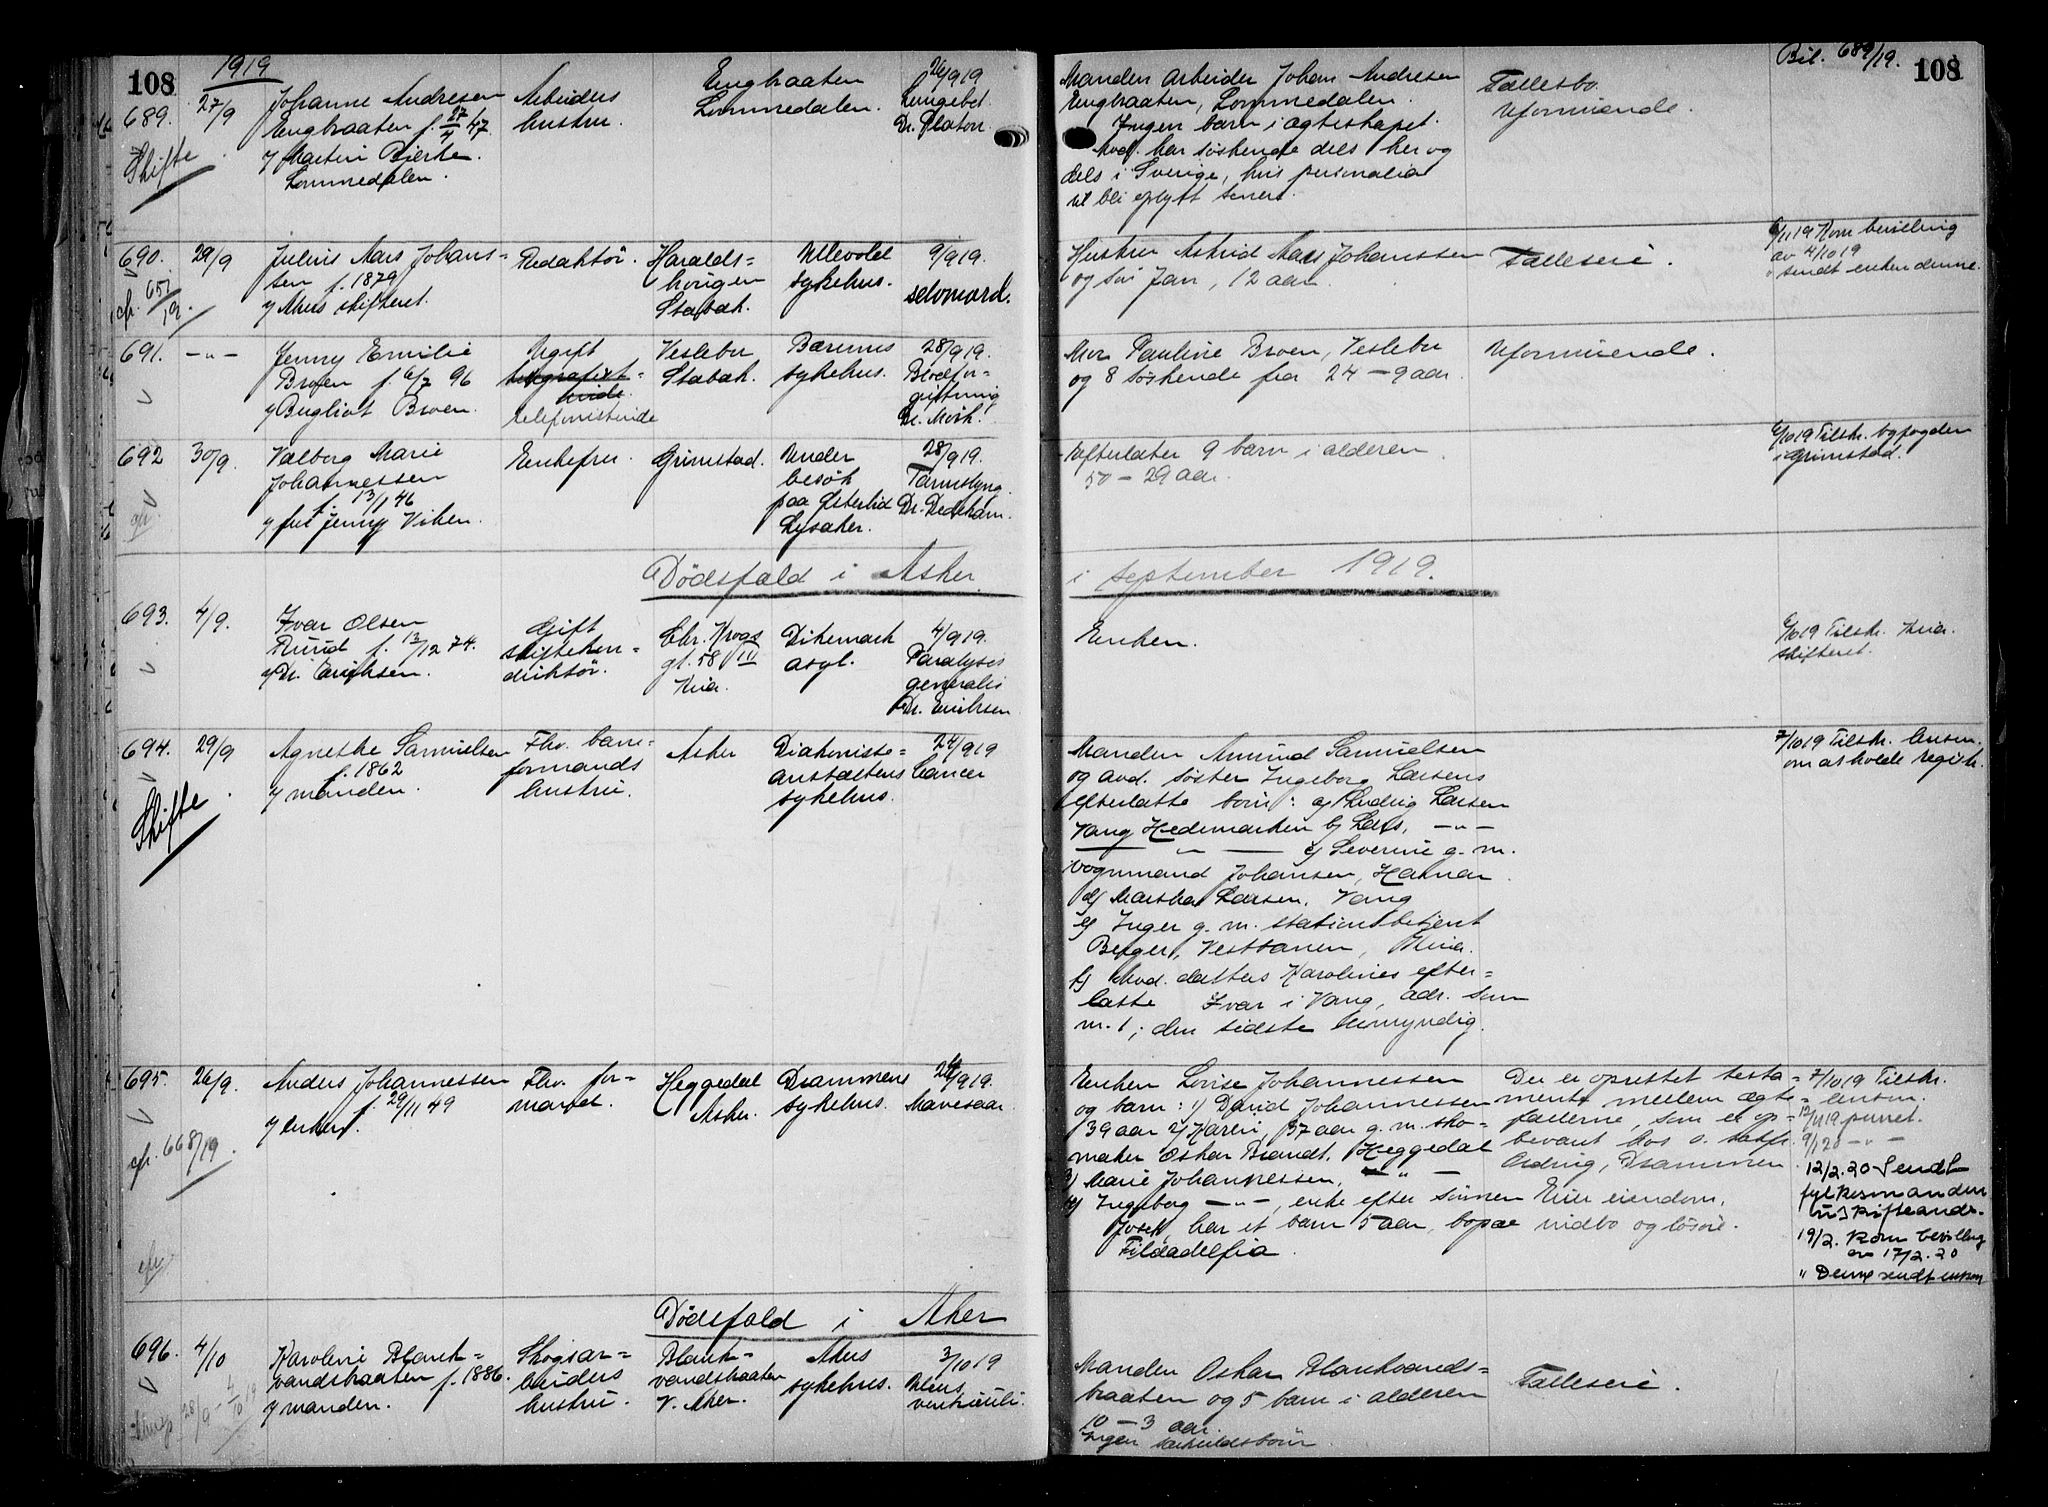 108
1919
689.
27/9
Johanne Andresen
Engbraaten f. 27/4 47.
v/ Martin Bjerke.
Lommedalen.
Skifte
Arbeiders
hustru.
Engbraaten
Lommedalen.
26/919
Lungebet.
Dr. Platon.
690.
29/9
Julius Aars Johans-
sen f. 1879
v/ Akers skifteret.
cfr. 651/19.
Redaktör.
Haralds-
Stabæk.
Ullevold
sykehus.
9/919.
selvmord.
691.
-"-
Jenny Emilie
Broen f. 6/7 96
v/ Bugliot Broen.
Ugift
telegrafist-
inde.
telefonistinde
Veslebo
Stabæk.
Bærums
sykehus.
28/919.
Blodfor-
giftning
Dr. Mork.
692
30/9.
Valborg Marie
Johannessen
f. 13/1 46
v/ fru Jenny Viken.
cfr.
Enkefru.
Grimstad.
Under
besök
paa Østerlid
Lysaker.
28/919.
Tarmslyng.
Dr. Dedekam.
Dödsfald i Asker
693.
4/9.
Ivar Olsen
Ruud f. 13/12 74.
v/ Dr. Eriksen.
Gift
duktör.
Chr. Krogs
gt. 58 IV
Kria.
Dikemark
asyl.
4/919.
Paralysis
generalis
Dr. Eriksen
694.
29/9
Agnethe Samuelsen
f. 1862
v/ manden.
Skifte
Fhv. bane-
formands
hustru.
Asker
Diakonisse-
anstaltens
sykehus.
24/919
Cancer
695.
26/9.
Anders Johannessen
f. 29/11 49
v/ enken.
cfr. 668/19.
cfr.
Fhv. for-
Heggedal
Asker.
Drammens
sykehus.
24/919.
Mavesaar.
Dödsfald i Aker
696.
4/10
Karoline Blank-
vandsbraaten f. 1886.
v/ manden.
28/9 - 4/10 19
Skogsar-
beiders
hustru.
Blank-
vandsbraaten
V. Aker.
Akers
sykehus.
3/1019
Ulcus
ventriculi.
Bil. 689/19.
108
Manden arbeider Johan Andresen
Engbraaten, Lommedalen.
Ingen barn i ægteskapet.
Avd. har söskende dels her og
dels i Sverige, hvis personalia
vil bli oplyst senere.
Fællesbo.
Uformuende.
Hustru Astrid Aars Johanssen
og sön Jan, 12 aar.
Fælleseie.
6/1119 Kom bevilling
av 4/1019
" sendt enken denne.
Mor Pauline Broen, Veslebo
og 8 söskende fra 24 - 9 aar.
Uformuende.
Efterlater 9 barn i alderen
50 - 29 aar.
6/1019 Tilskr. byfogden
i Grimstad.
i september 1919.
Enken.
6/1019 Tilskr. Kria.
skifteret.
Manden Amund Samuelsen
og avd. söster Ingeborg Larsens
efterlatte barn: a/ Ludvig Larsen
Vang Hedemarken b/ Lars, -"-
-"- c/ Severine g. m.
vognmand Johansen, Hamar.
d/ Martha Larsen, Vang
e/ Inger g. m. stationsbetjent
Berger, Vestbanen, Kria.
f/ Avd. datters Karolines efter-
latte Ivar i Vang, adr. som
nr. 1, den sidste umyndig.
7/1019 Tilskr. lensm.
om at holde registr.
Enken Lovise Johannessen
og barn: 1/ David Johannessen
39 aar 2/ Karen, 37 aar g. m. sko-
maker Oskar Brandt, Heggedal
3/ Marie Johannessen, -"-
4/ Ingeborg -"-, enke efter sönnen
Josef, har et barn 5 aar, bopæl
Filadelfia.
Der er oprettet testa-
mente mellem ægte-
fællerne, som er op-
bevart hos o. satsf.
Ording, Drammen.
Eier eiendom,
indbo og lösöre.
7/1019 Tilskr.
lensm.
12/1119 purret.
9/120 -"-
12/2.20 Sendt
fylkesmanden
19/2. Kom bevilling
av 17/2.20
" Denne sendt enken
Manden Oskar Blankvands-
braaten og 5 barn i alderen
10 - 3 aar.
Ingen særkuldsbörn.
Fælleseie.